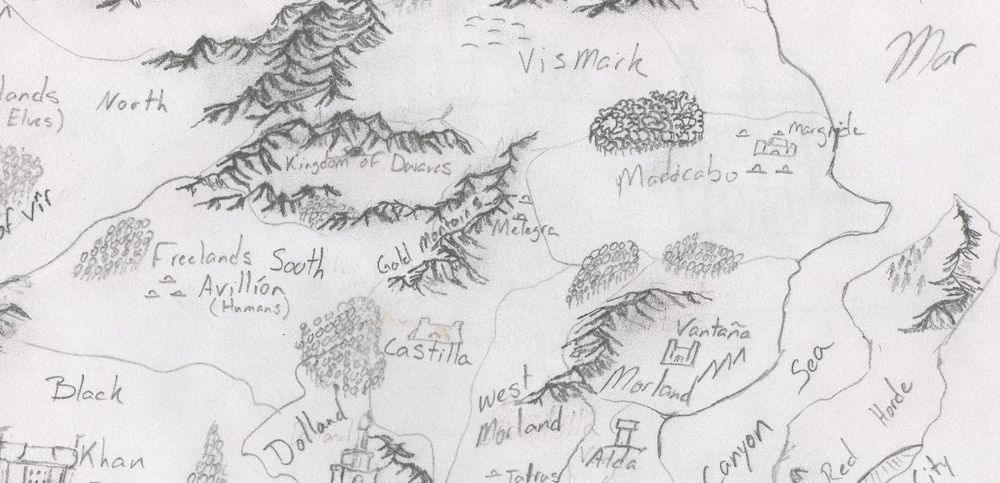 Mar
Vismark
lands
Elves)
North
Margride
Kingdom of Dwarves
Maricabo
of Vir
Melegra
Gold Montains
Freelands South
Avillión
(Humans)
Vantaña
Castilla
Sea
Morland
West
Morland
Black
Horde
Dolland
Canyon
Alda
Khan
Red
City
Tatras